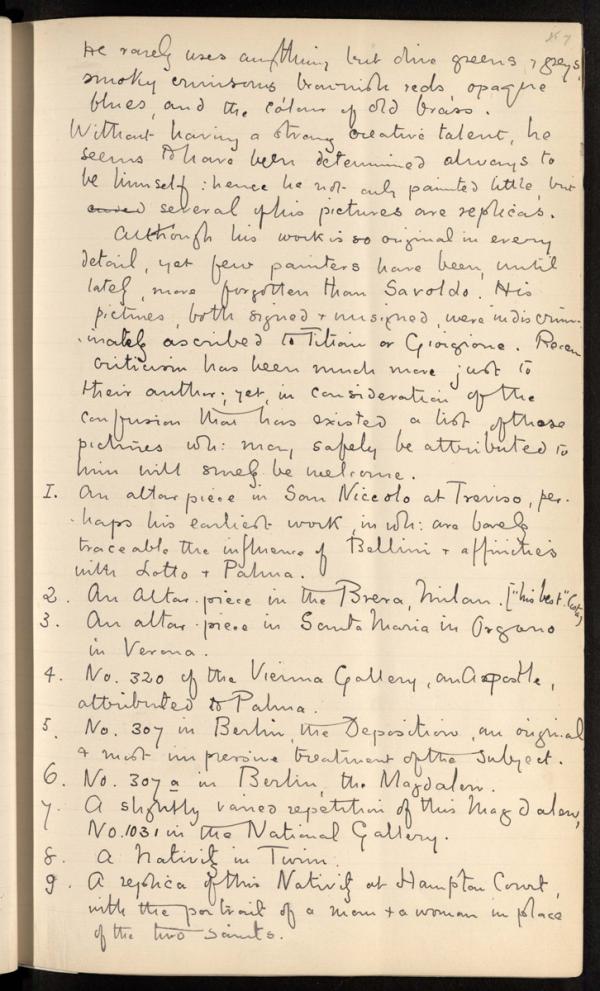 He rarely uses anything but olive greens, & greys,
smoky crimsons brownish reds, opaque
blues, and the colour of old brass.
Without having a strong creative talent, he
seems to have been determined always to
be himself: hence he not only painted little, but
several of his pictures are replicas.
Although his work is so original in every
detail, yet few painters have been, until
lately, more forgotten than Savoldo. His
pictures, both signed & unsigned, were indiscrim-
-inately ascribed to Titian or Giorgione. Recen
criticism has been much more just to
their author; yet, in consideration of the
confusion that has existed, a list of those
pictures wh: may safely be attributed to
him will surely be welcome.
1. An altar piece in San Niccolo at Treviso, per-
-haps his earliest work, in wh: are barely
traceable the influence of Bellini & affinities
with Lotto & Palma.
2. An Altar-piece in the Brera, Milan. ["his best"
3. An altar-piece in Santa Maria in Organo
in Verona.
4. No. 320 of the Vienna Gallery, an Apostle,
attributed to Palma.
5. No. 307 in Berlin, the Deposition, an original
& most impressive treatment of the subject.
6. No. 307 a in Berlin, the Magdalen.
7. A slightly varied repetition of this Magdalen,
No. 1031 in the National Gallery.
8. A Nativity in Turin.
9. A replica of this Nativity at Hampton Court,
with the portrait of a man & a woman in place
of the two saints.